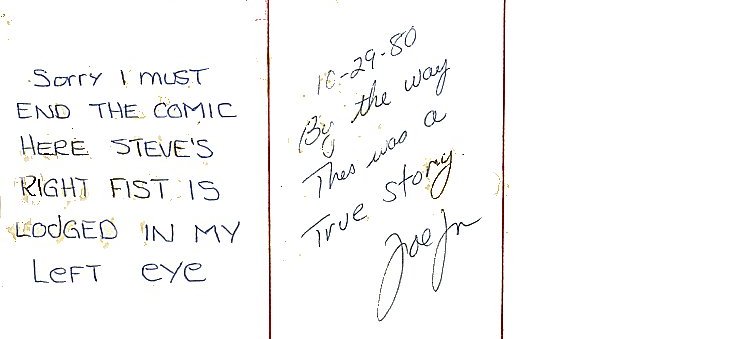 Sorry I MUST
END THE COMIC
HERE STEVE'S
RIGHT FIST IS
LODGED IN MY
LEFT eye
10-29-80
By the way
Thes was a
True Story.
Joe Jr